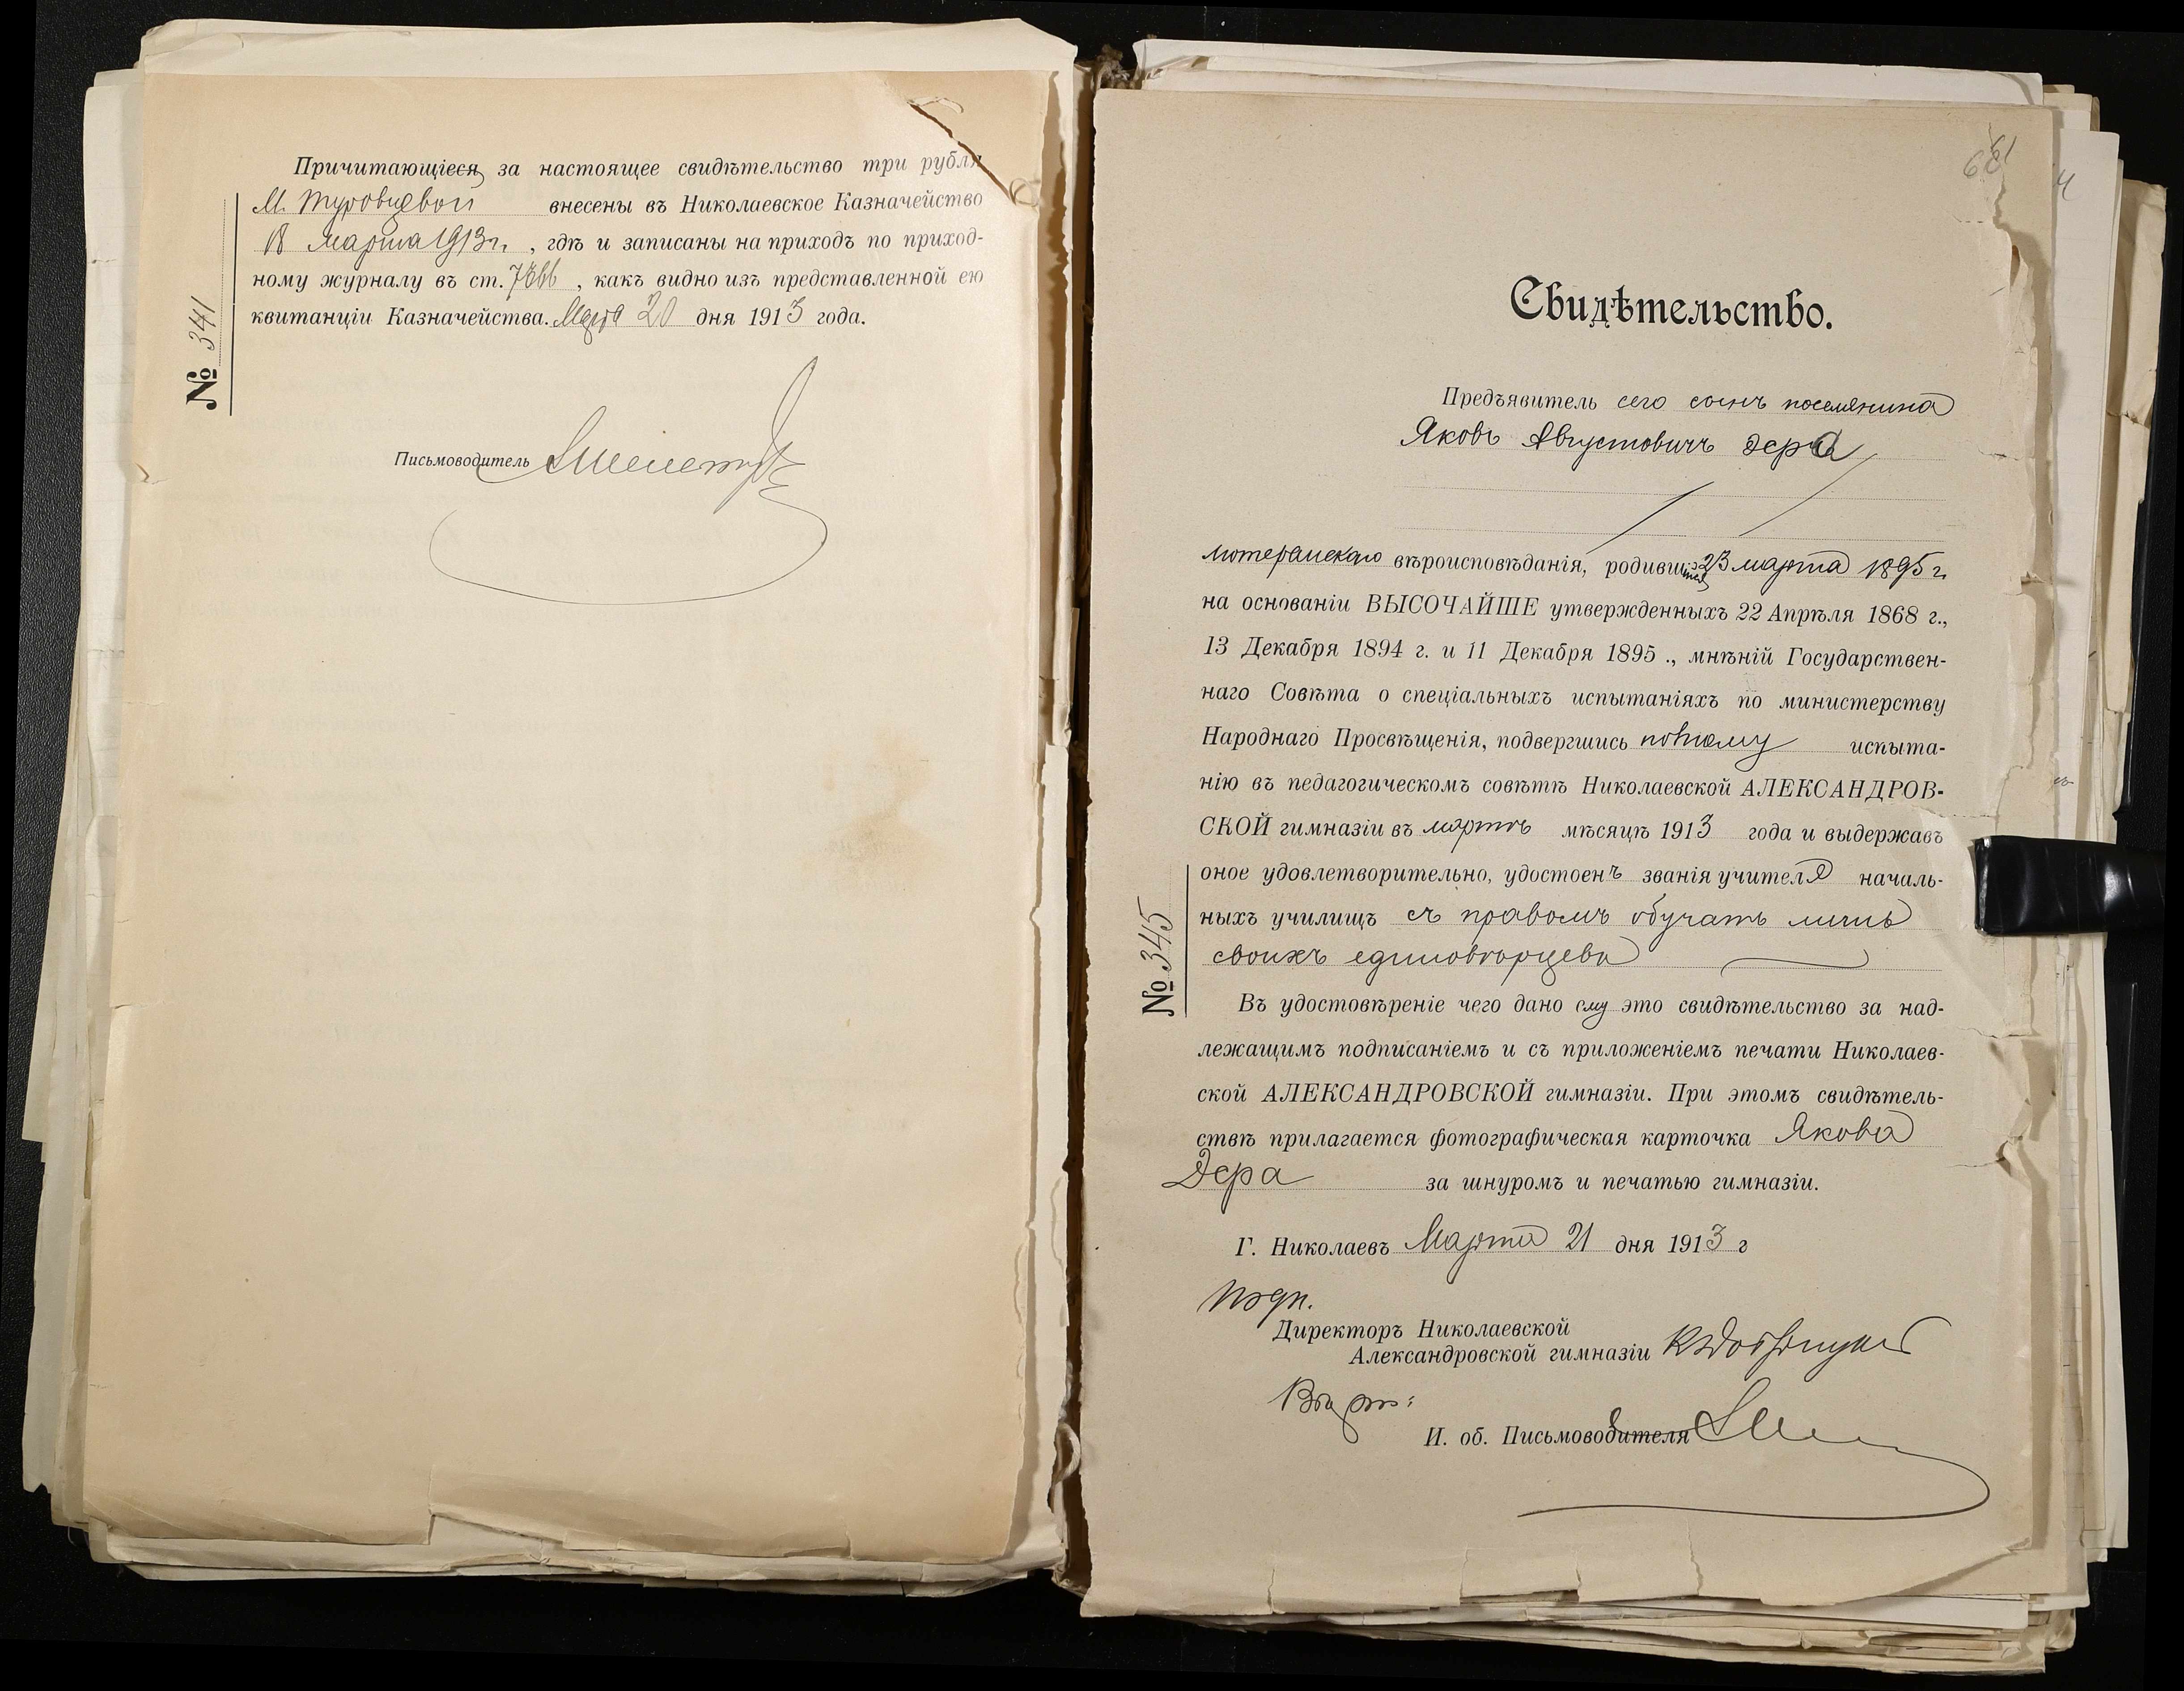 Причитающіеся за настоящее свидѣтельство три рубля
М. Туровцевой внесены въ Николаевское Казначейство
18 марта 1913 г. , гдѣ и записаны на приходъ по приход-
ному журналу въ ст. , какъ видно изъ представленной ею
квитанціи Казначейства. Марта 20 дня 1913 года.
№ 341
Письмоводитель
61
Свидѣтельство.
Предъявитель сего сынъ поселянина
Яковъ Августовичъ Дера
лютеранскаго вѣроисповѣданія, родившійся 23 марта 1895 г.
на основаніи ВЫСОЧАЙШЕ утвержденныхъ 22 Апрѣля 1868 г.,
13 Декабря 1894 г. и 11 Декабря 1895 ., мнѣній Государствен-
наго Совѣта о спеціальныхъ испытаніяхъ по министерству
Народнаго Просвѣщенія, подвергшись полному испыта-
нію въ педагогическомъ совѣтѣ Николаевской АЛЕКСАНДРОВ-
СКОЙ гимназіи въ мартѣ мѣсяцѣ 1913 года и выдержавъ
оное удовлетворительно, удостоенъ званія учителя началь-
ныхъ училищъ съ правомъ обучать лишь
своихъ единовѣрцевъ
№ 345
Въ удостовѣреніе чего дано ему это свидѣтельство за над-
лежащимъ подписаніемъ и съ приложеніемъ печати Николаев-
ской АЛЕКСАНДРОВСКОЙ гимназіи. При этомъ свидѣтель-
ствѣ прилагается фотографическая карточка Якова
Дера за шнуромъ и печатью гимназіи.
Г. Николаевъ Марта 21 дня 1913 г
Подп.
Директоръ Николаевской
Александровской гимназіи
Вѣрно:
И. об. Письмоводителя